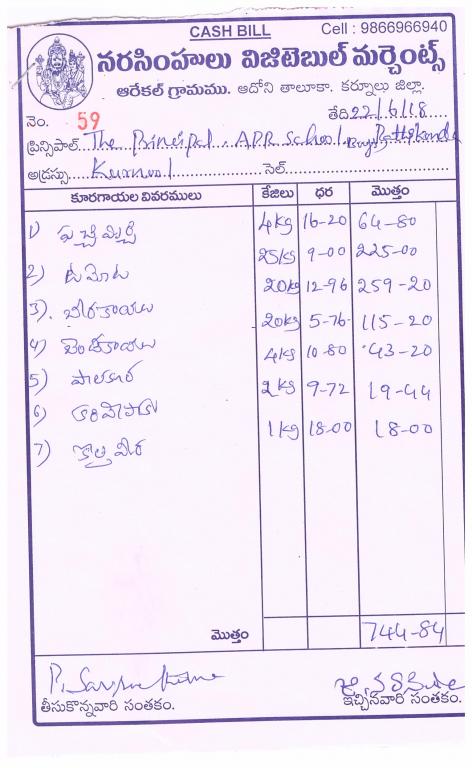 CASH BILL Cell : 9866966940
నరసింహలు విజిటెబుల్ మర్చెంట్స్
ఆరేకల్ గ్రామము. ఆదోని తాలూకా. కర్నూలు జిల్లా.
నెం. 59 తేది 22/6/18
ప్రిన్సిపాల్ The Principal. APR School, Boys Pattikonda
అడ్రస్సు Kurnool సెల్
కూరగాయల వివరములు కేజీలు ధర మొత్తం
1) పచ్చిమిర్చి 4kg 16-20 64-80
2) టమోట 25kg 9-00 225-00
3). బీరకాయలు 20kg 12-96 259-20
4) బెండకాయలు 20kg 5-76 115-20
5) పాలకూర 4kg 10-80 43-20
6) కరివేపాకు 2kg 9-72 19-44
7) కొత్తమీర 1kg 18-00 18-00
మొత్తం 744-84
తీసుకొన్నవారి సంతకం. ఇచ్చినవారి సంతకం.